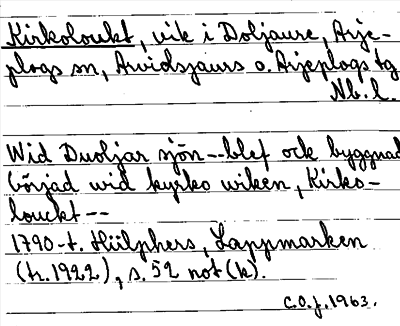 Kirkoloukt, vik i Doljaure, Arje-
plogs sn, Arvidsjaurs o. Arjeplogs tg
Nb. l.
Wid Duoljar sjön--blef ock byggnad
börjad wid kyrko wiken, Kirko-
louckt--
1790-t. Hülphers, Lappmarken
(tr. 1922), s. 52 not (k).
C.O.J. 1963.